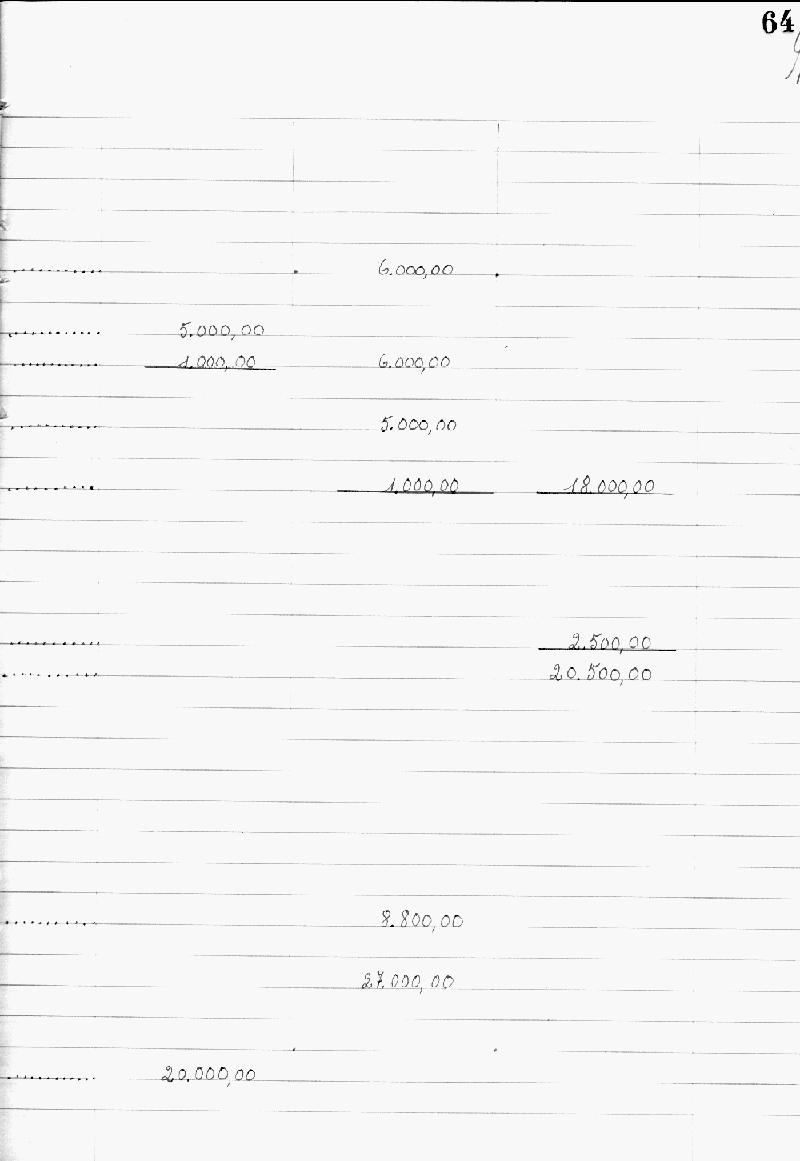 64
6.000,00
5.000,00
1.000,00 6.000,00
5.000,00
1.000,00 18.000,00
2.500,00
20.500,00
8.800,00
27.000,00
20.000,00